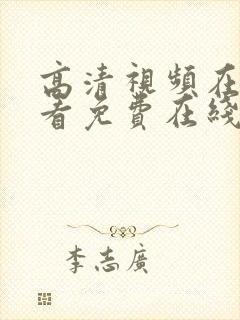 高清視頻在
看免費在綫
李志廣